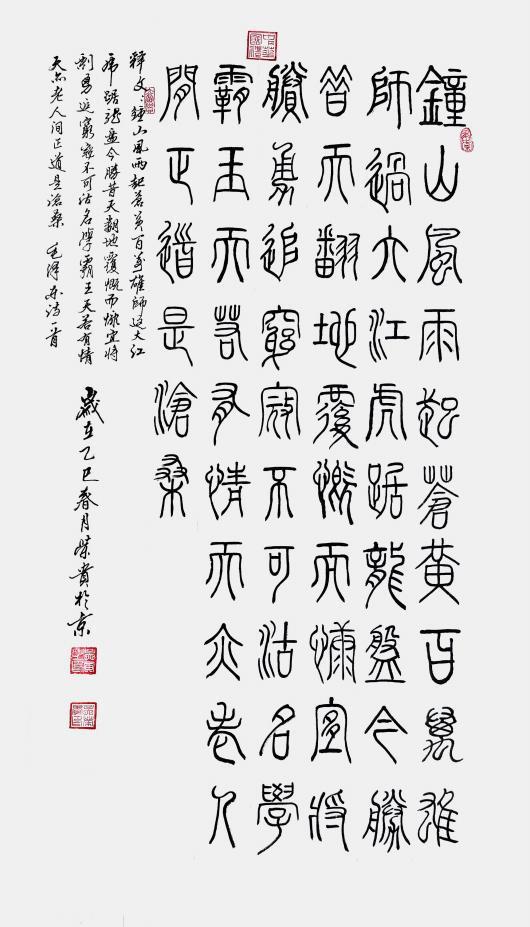 鐘山風雨起蒼黃百萬雄
師過大江虎踞龍盤今勝
昔天翻地覆慨而慷宜將
賸勇追窮寇不可沽名學
霸王天若有情天亦老人
間正道是滄桑
釋文:鍾山風雨起蒼黃百萬雄師过大江
虎踞龍盘今勝昔天翻地覆慨而慷宜将
剩勇追窮寇不可沽名學霸王天若有情
天亦老人间正道是滄桑 毛澤东诗一首
歲在乙巳春月榮貴於京